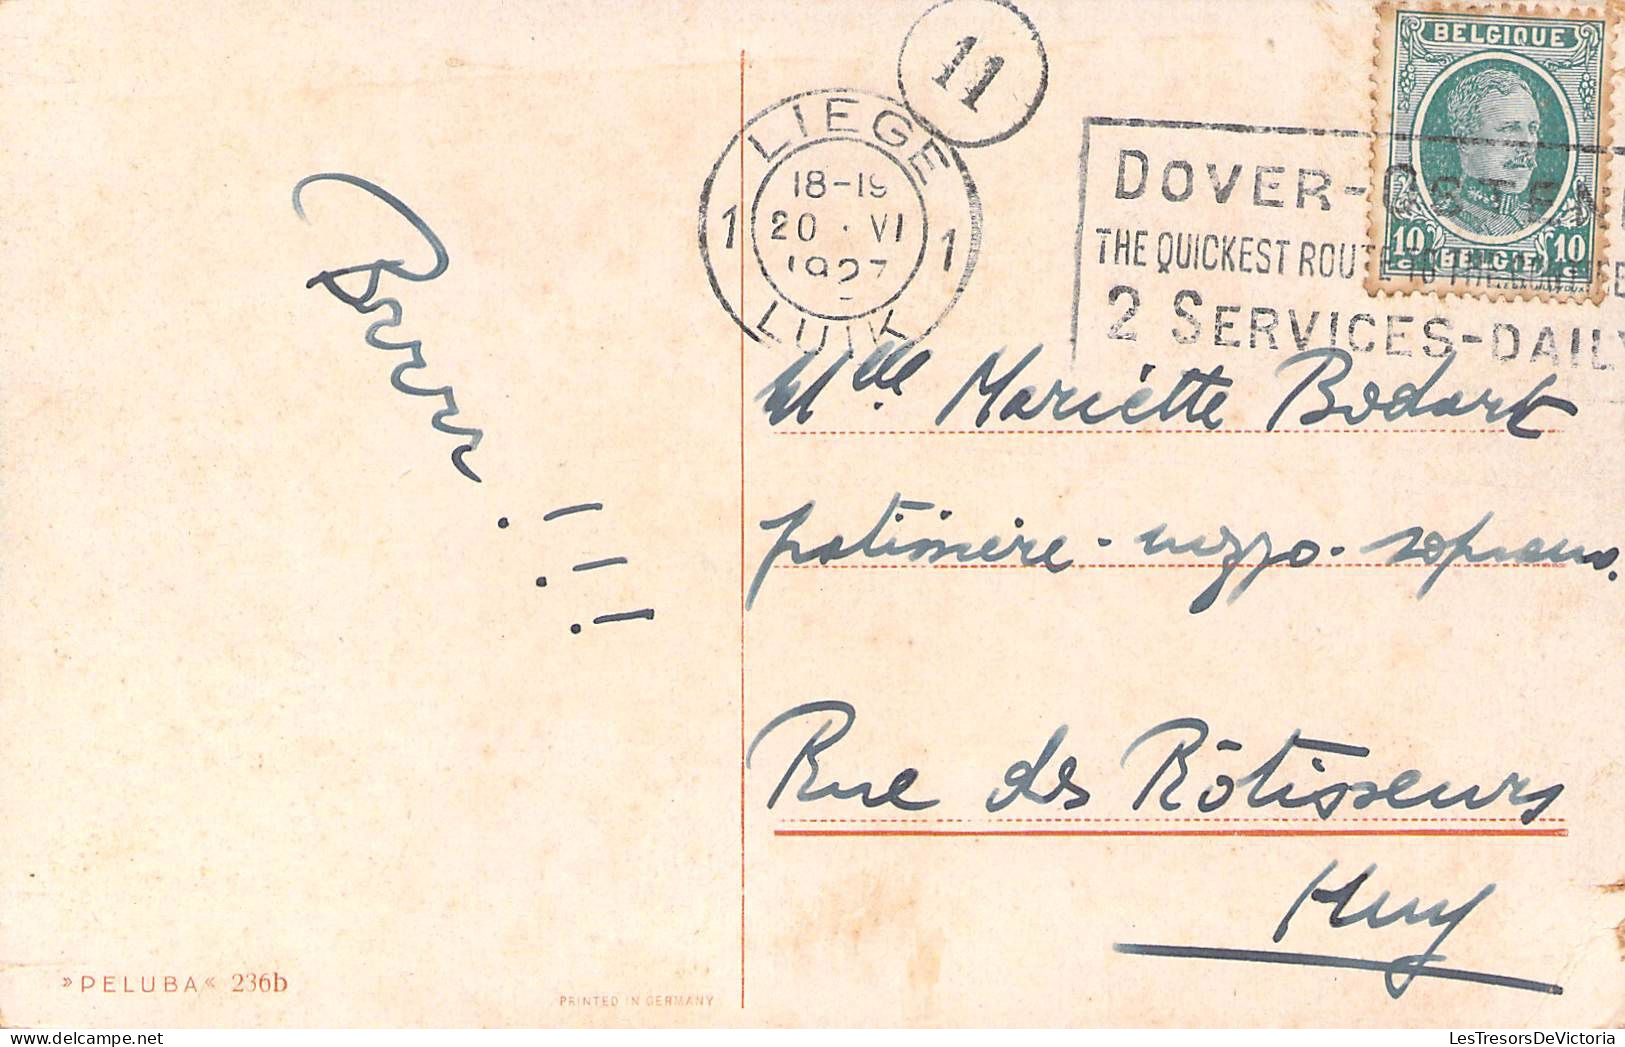 Brrrr !!!
11
LIEGE
18-19
20 · VI
1927
1 1
LUIK
BELGIQUE
10 c 10 c
BELGIE
DOVER-OSTEN
THE QUICKEST ROUTE TO THE
2 SERVICES-DAILY
Mlle Mariette Bodart
patissière - mezzo - soprano.
Rue des Rôtisseurs
Huy
»PELUBA« 236b
PRINTED IN GERMANY
LesTresorsDeVictoria